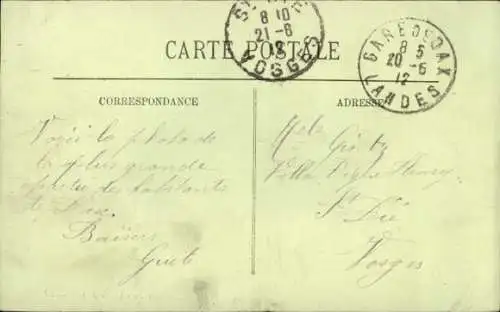 CARTE POSTALE
8 10
21-6
12
VOSGES
GARE DE DAX
8 5
20-6
12
LANDES
CORRESPONDANCE
ADRESSE
Voici la photo de
la plus grande
partie des habitants
de Dax.
Baisers
Villa
St Dié
Vosges